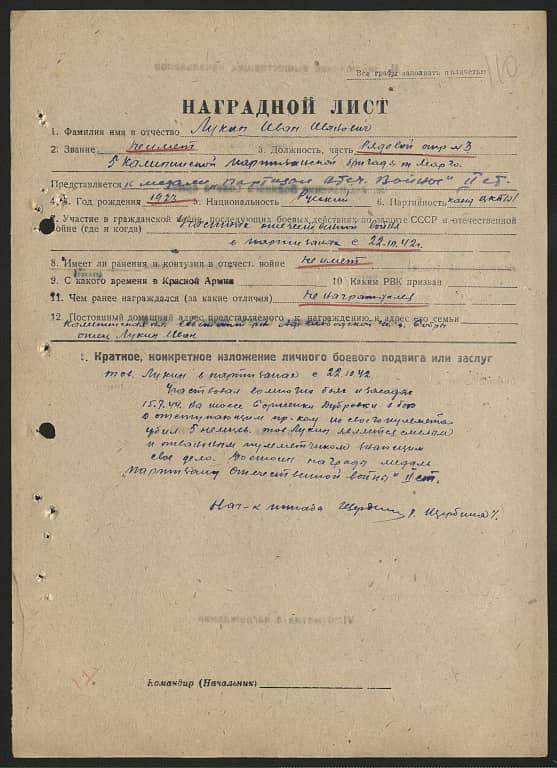 110
Все графы заполнять полностью
НАГРАДНОЙ ЛИСТ
1. Фамилия имя и отчество Лукин Иван Иванович
2. Звание не имеет 3. Должность, часть Рядовой отр №3
5 Калининской партизанской бригады т. Марго.
Представляется к медали "Партизан Отеч. Войны" II ст.
4. Год рождения 1923 5. Национальность Русский 6. Партийность канд
7. Участие в гражданской войне, последующих боевых действиях по защите СССР и отечественной
войне (где и когда) отечественной войны
с 22.10.42г.
8. Имеет ли ранения и контузии в отечест. войне не имеет
9. С какого времени в Красной Армии 10 Каким РВК призван
11. Чем ранее награждался (за какие отличия) Не награждался
12. Постоянный домашний адрес представляемого к награждению и адрес его семьи
Калининская
отец Лукин Иван
1. Краткое, конкретное изложение личного боевого подвига или заслуг
тов. Лукин в партизанах с 22.10.42
Участвовал во многих боях и засадах
15.7.44. на шоссе Дубровки в бою
с отступающим пр-ком из своего пулемета
убил 5 немцев. тов Лукин является смелым
и отважным пулеметчиком знающим
свое дело. Достоин награды медаль
"Партизану Отечественной войны" II ст.
Нач-к штаба
Командир (Начальник)